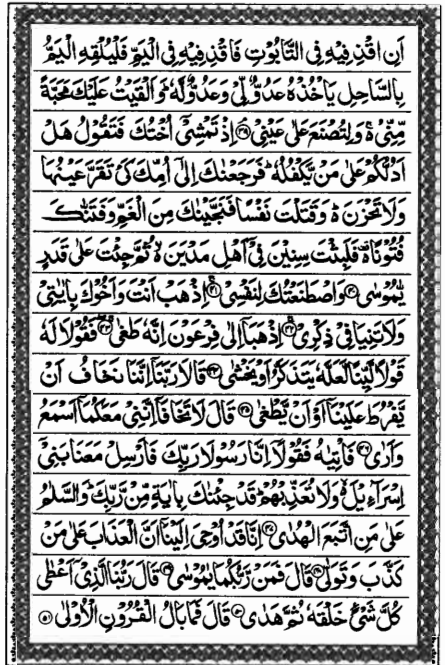 اَنِ اقْذِفِيْهِ فِي التَّابُوْتِ فَاقْذِفِيْهِ فِي الْيَمِّ فَلْيُلْقِهِ الْيَمُّ
بِالسَّاحِلِ يَاْخُذْهُ عَدُوٌّ لِّيْ وَعَدُوٌّ لَّهٗ ؕ وَاَلْقَيْتُ عَلَيْكَ مَحَبَّةً
مِّنِّيْ ۚ۬ وَلِتُصْنَعَ عَلٰى عَيْنِيْ ۘ﴿۳۹﴾ اِذْ تَمْشِيْۤ اُخْتُكَ فَتَقُوْلُ هَلْ
اَدُلُّكُمْ عَلٰى مَنْ يَّكْفُلُهٗ ؕ فَرَجَعْنٰكَ اِلٰۤى اُمِّكَ كَيْ تَقَرَّ عَيْنُهَا
وَلَا تَحْزَنَ ؕ۬ وَقَتَلْتَ نَفْسًا فَنَجَّيْنٰكَ مِنَ الْغَمِّ وَفَتَنّٰكَ
فُتُوْنًا ۫۬ فَلَبِثْتَ سِنِيْنَ فِيْۤ اَهْلِ مَدْيَنَ ۙ۬ ثُمَّ جِئْتَ عَلٰى قَدَرٍ
يّٰمُوْسٰى ﴿۴۰﴾ وَاصْطَنَعْتُكَ لِنَفْسِيْ ۚ﴿۴۱﴾ اِذْهَبْ اَنْتَ وَاَخُوْكَ بِاٰيٰتِيْ
وَلَا تَنِيَا فِيْ ذِكْرِيْ ۚ﴿۴۲﴾ اِذْهَبَاۤ اِلٰى فِرْعَوْنَ اِنَّهٗ طَغٰى ۚۖ﴿۴۳﴾ فَقُوْلَا لَهٗ
قَوْلًا لَّيِّنًا لَّعَلَّهٗ يَتَذَكَّرُ اَوْ يَخْشٰى ﴿۴۴﴾ قَالَا رَبَّنَاۤ اِنَّنَا نَخَافُ اَنْ
يَّفْرُطَ عَلَيْنَاۤ اَوْ اَنْ يَّطْغٰى ﴿۴۵﴾ قَالَ لَا تَخَافَاۤ اِنَّنِيْ مَعَكُمَاۤ اَسْمَعُ
وَاَرٰى ﴿۴۶﴾ فَاْتِيٰهُ فَقُوْلَاۤ اِنَّا رَسُوْلَا رَبِّكَ فَاَرْسِلْ مَعَنَا بَنِيْۤ
اِسْرَآءِيْلَ ۙ۬ وَلَا تُعَذِّبْهُمْ ؕ قَدْ جِئْنٰكَ بِاٰيَةٍ مِّنْ رَّبِّكَ ؕ وَالسَّلٰمُ
عَلٰى مَنِ اتَّبَعَ الْهُدٰى ﴿۴۷﴾ اِنَّا قَدْ اُوْحِيَ اِلَيْنَاۤ اَنَّ الْعَذَابَ عَلٰى مَنْ
كَذَّبَ وَتَوَلّٰى ﴿۴۸﴾ قَالَ فَمَنْ رَّبُّكُمَا يٰمُوْسٰى ﴿۴۹﴾ قَالَ رَبُّنَا الَّذِيْۤ اَعْطٰى
كُلَّ شَيْءٍ خَلْقَهٗ ثُمَّ هَدٰى ﴿۵۰﴾ قَالَ فَمَا بَالُ الْقُرُوْنِ الْاُوْلٰى ﴿۵۱﴾